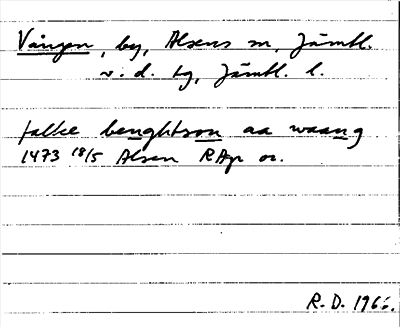 Vången, by, Alsens sn, Jämtl.
v. d. tg, Jämtl. l.
falke benghtson aa waang
1473 18/5 Alsen RAp or.
R. D. 1966.